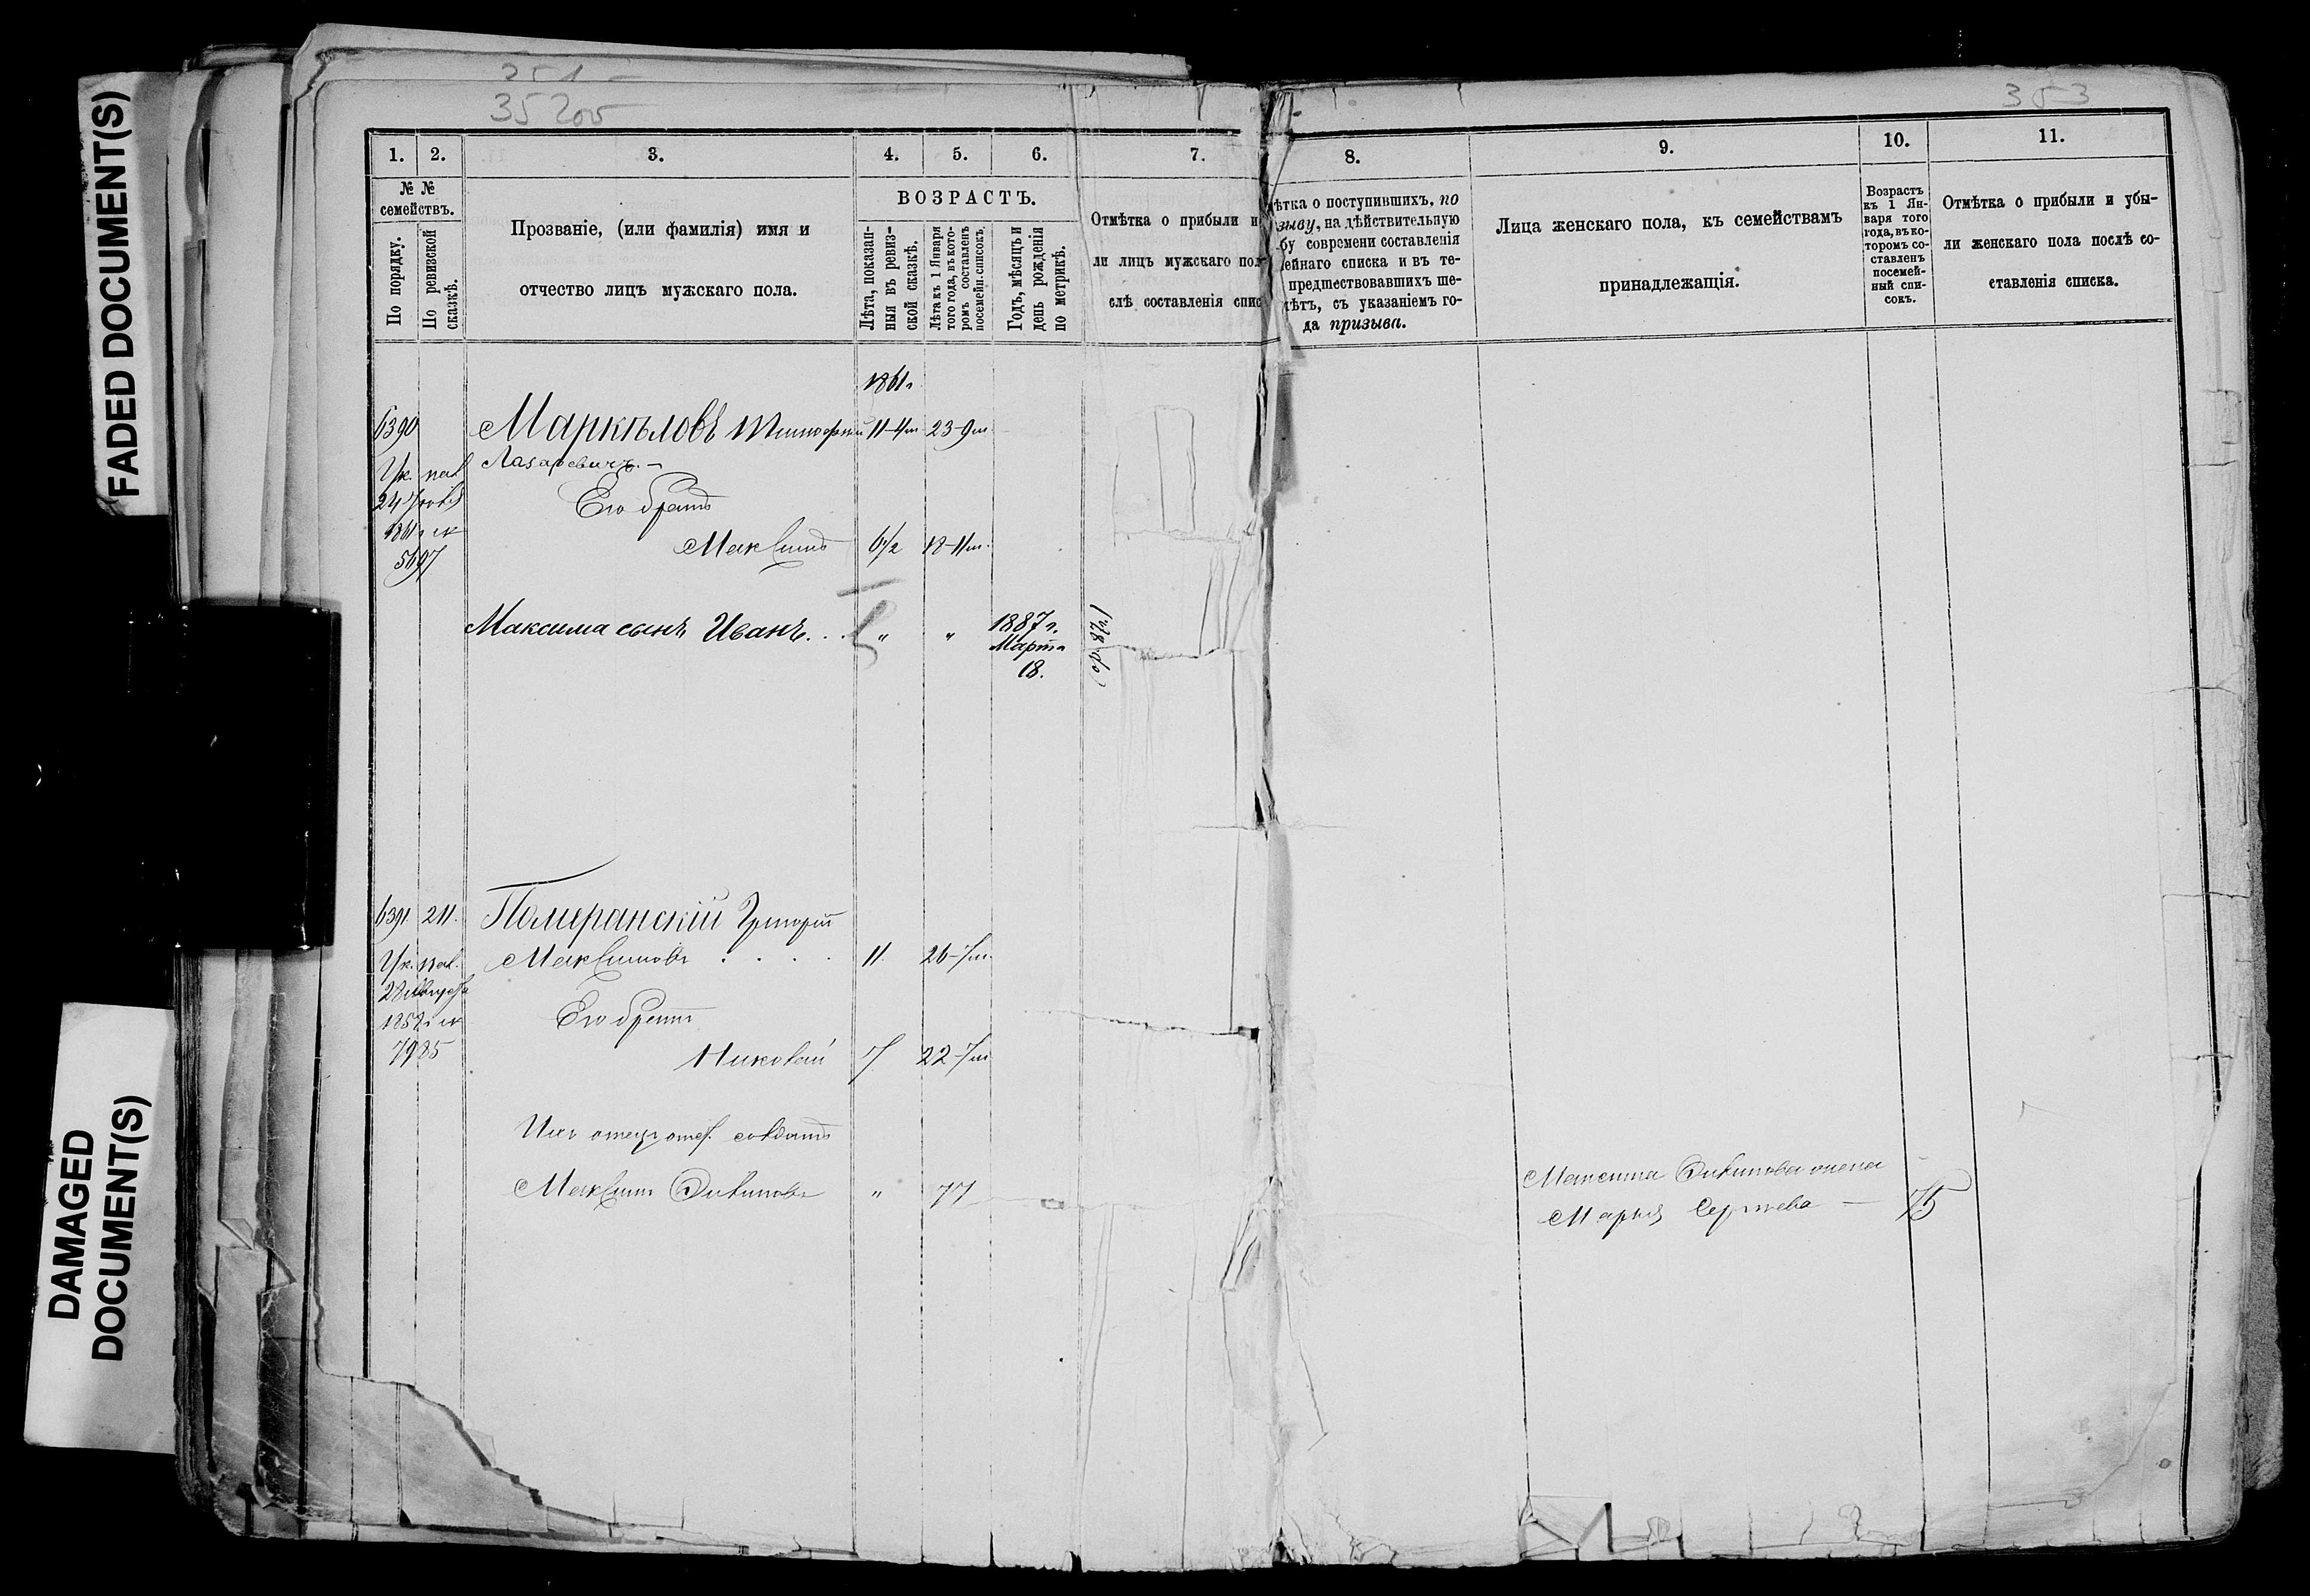 FADED DOCUMENT(S)
DAMAGED
DOCUMENT(S)
35 2об
353
1. 2. 3. 4. 5. 6. 7.
№ №
семействъ.
По порядку.
По ревизской
сказкѣ.
Прозваніе, (или фамилія) имя и
отчество лицъ мужскаго пола.
ВОЗРАСТЪ.
Лѣта, показан-
ныя въ ревиз-
ской сказкѣ.
Лѣта къ 1 Января
того года, въ кото-
ромъ составленъ
посемейн. списокъ.
Годъ, мѣсяцъ и
день рожденія
по метрикѣ.
Отмѣтка о прибыли и
ли лицъ мужскаго пол
слѣ составленія спис
8. 9. 10. 11.
ѣтка о поступившихъ, по
зыву, на дѣйствительную
бу современи составленія
ейнаго списка и въ те-
предшествовавшихъ ше-
ѣтъ, съ указаніемъ го-
да призыва.
Лица женскаго пола, къ семействамъ
принадлежащія.
Возрастъ
къ 1 Ян-
варя того
года, въ ко-
торомъ со-
ставленъ
посемей-
ный спи-
сокъ.
Отмѣтка о прибыли и убы-
ли женскаго пола послѣ со-
ставленія списка.
1861г
6390 Маркѣловъ Тимофей 11-4м 23-9м
Ук. пал Лазаревичъ.
24
Его братъ
1861г
Максимъ 6½ 18-11м.
5697
Максима сынъ Иванъ. . . " " 1887 г.
Марта
18.
6391. 211. Померанскій Григорій
Ук. пал. Максимовъ . . . . 11. 26-7м.
28 Августа
1858г Его братъ
7985 Николай 7 22-7м
Ихъ отецъ отст. солдатъ
Максимъ Филиповъ " 77
Максима Филипова жена
Марья Сергѣева — 75